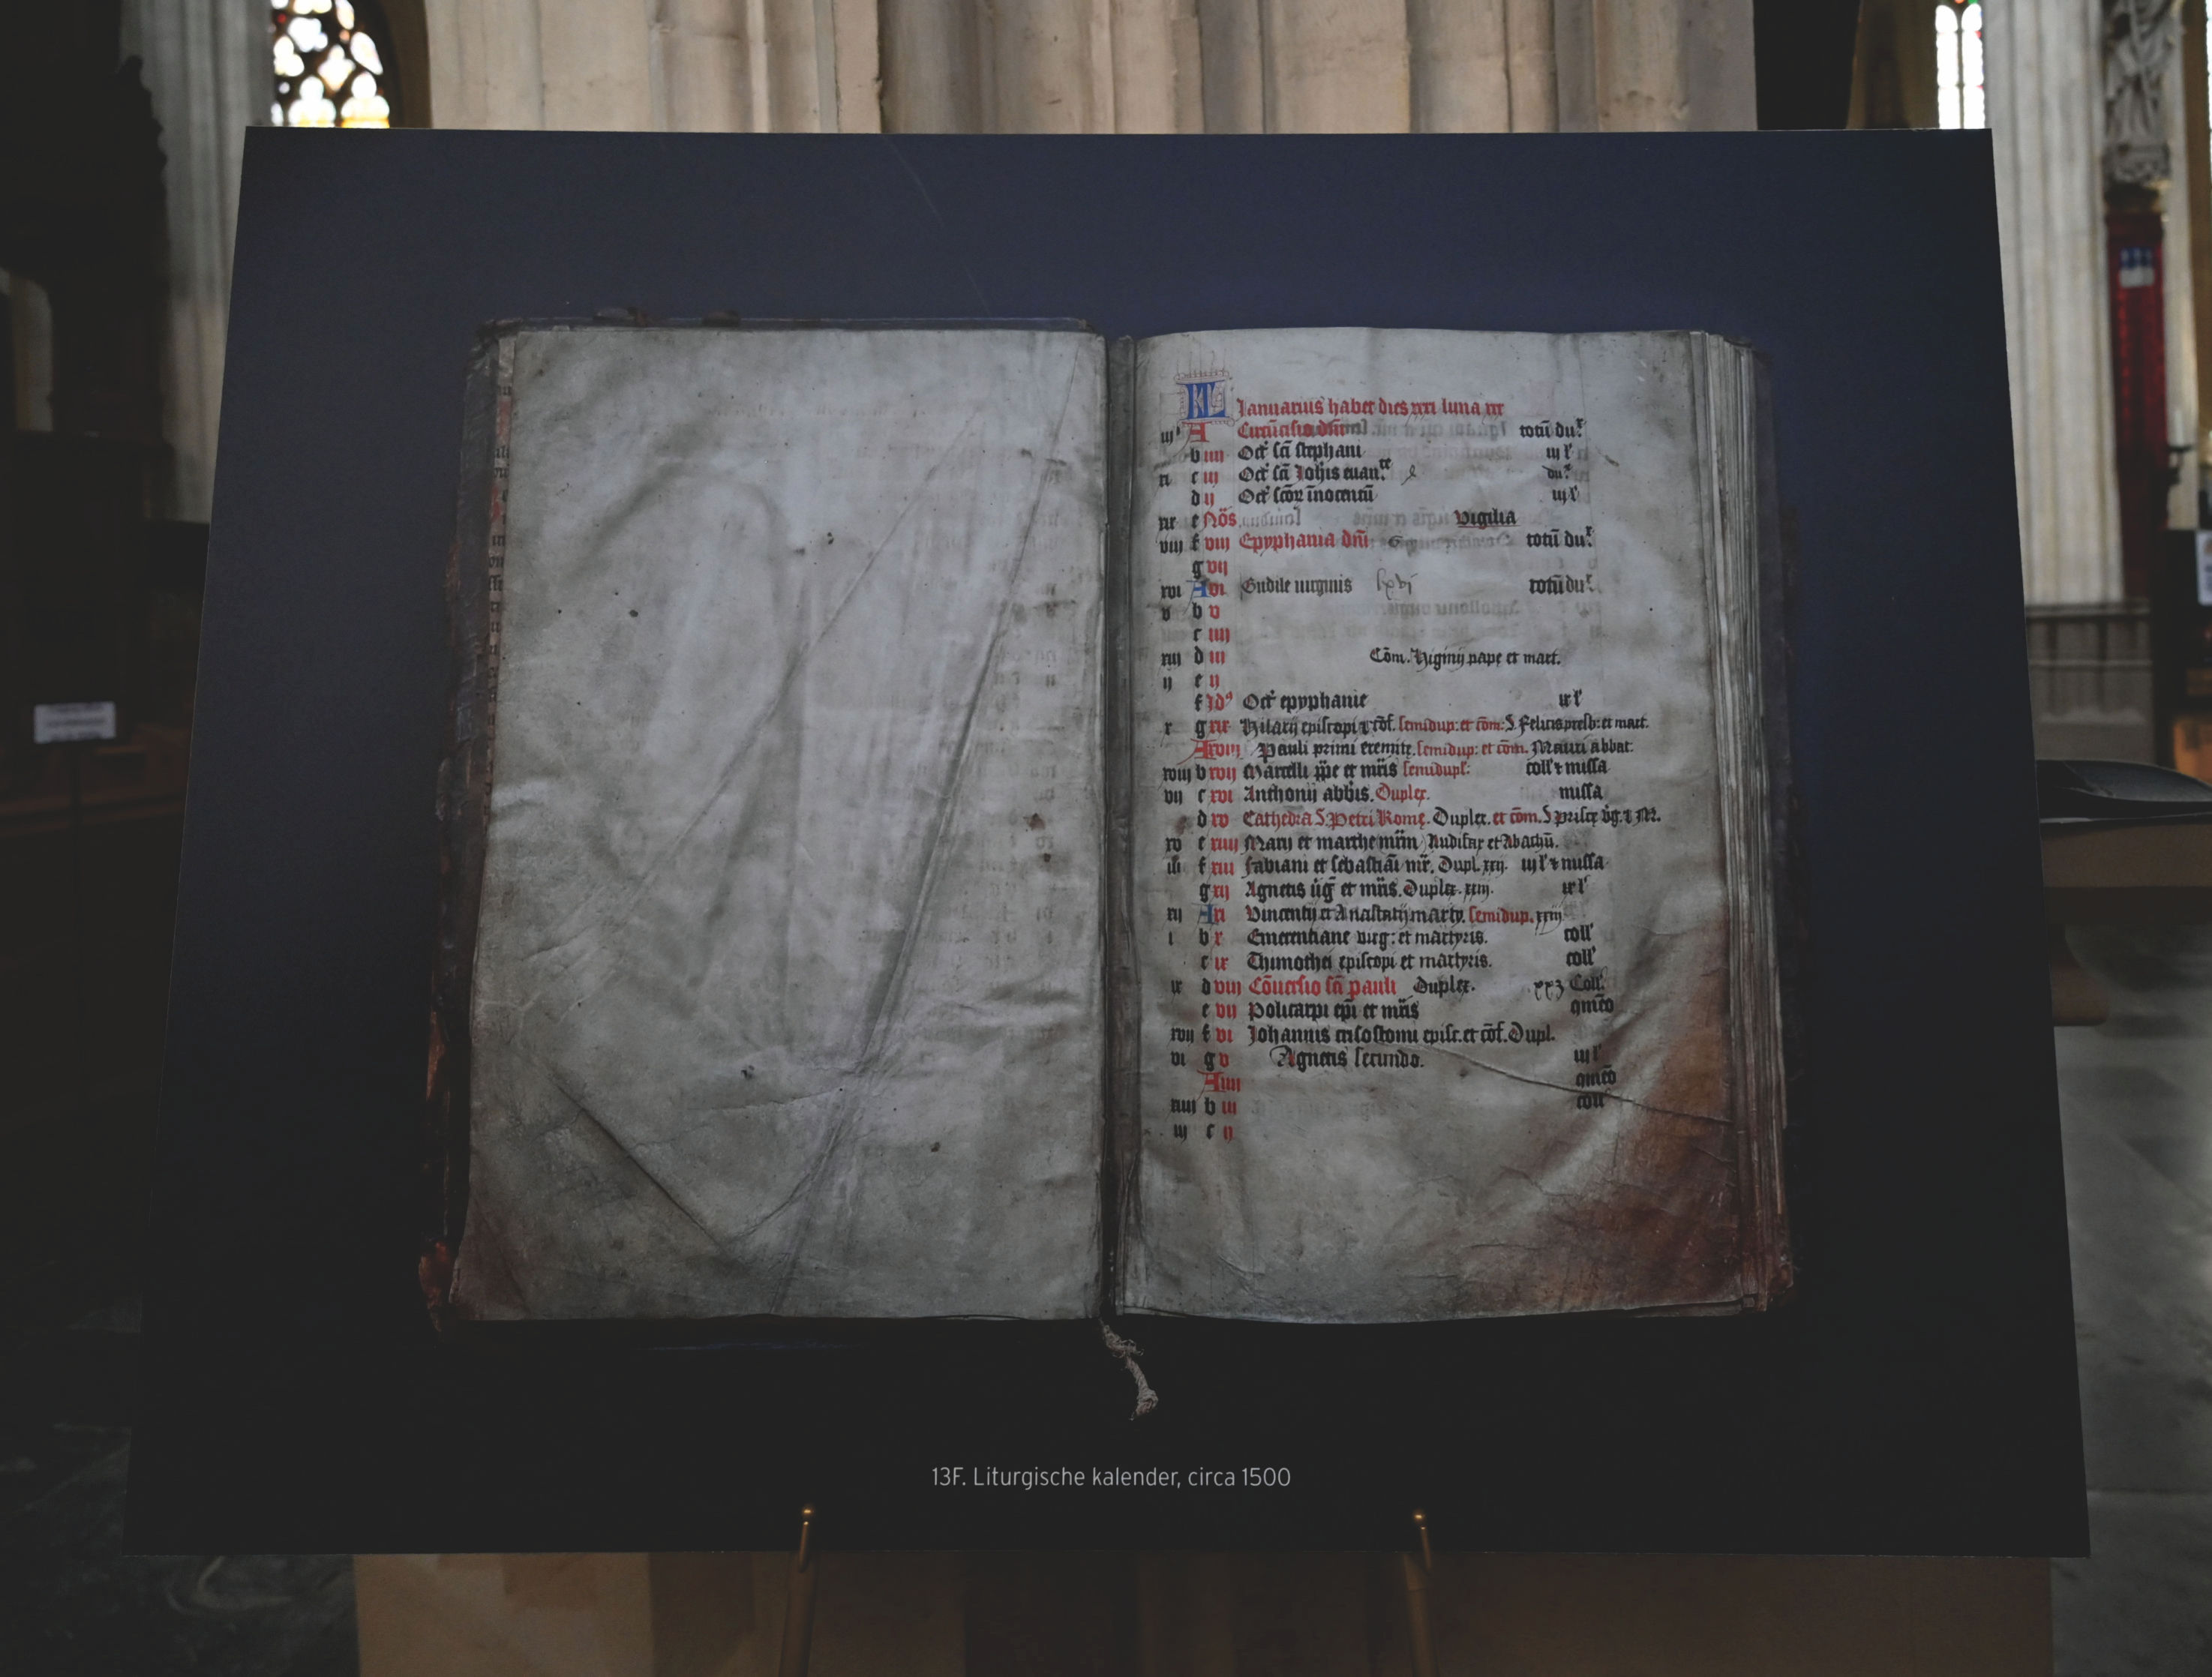 KL Januarius habet dies xxxi luna xxx
iii A Circūcisio dn̄i totū du.
b iiii Oct̄ sc̄i stephani iij l'
xi c iij Oct̄ sc̄i Joh̄is euan. du.
d ij Oct̄ sc̄oꝝ īnocentū iij l'
xix e Nōs Vigilia
viij f viij Epyphania dn̄i totū du.
g vij
xvi A vi Gudile uirginis lxvj totū du.
v b v
c iiij
xiij d iij Cōm. Higinij pape et mart.
ij e ij
f Idꝰ Oct̄ epyphanie ix l'
x g xix Hilarij episcopi et cōf. semidup: et cōm: S. Felicis presb: et mart.
A xviij Pauli primi eremite. semidup: et cōm. Mauri abbat.
xviij b xvij Marcelli pp̄e et mr̄is semidupl: coll' et missa
vij c xvi Anthonij abb̄is. Duplex. missa
d xv Cathedra S. Petri Romę. Duplex. et cōm. S Priscę v̄g. et M.
xv e xiiij Marij et marthe mr̄m Audifax et Abachū.
iiii f xiii Fabiani et sebastiāi mr̄. Dupl. xxij. iij l' et missa
g xij Agnetis ūḡ et mr̄is. Duplex. xxiij. ix l'
xij A xi Vincentij et Anastasij marty. semidup. xxiij
i b x Emerentiane virg: et martyris. coll'
c ix Thimothei episcopi et martyris. coll'
ix d viij Cōuersio sc̄i pauli Duplex. xx3 Coll'.
e vij Policarpi ep̄i et mr̄is qm̄co
xvij f vi Johannis crisostomi episc. et cōf. Dupl.
vi g v Agnetis secundo. iij l'
A iiij qm̄co
xiiij b iij coll
iij c ij
13F. Liturgische kalender, circa 1500